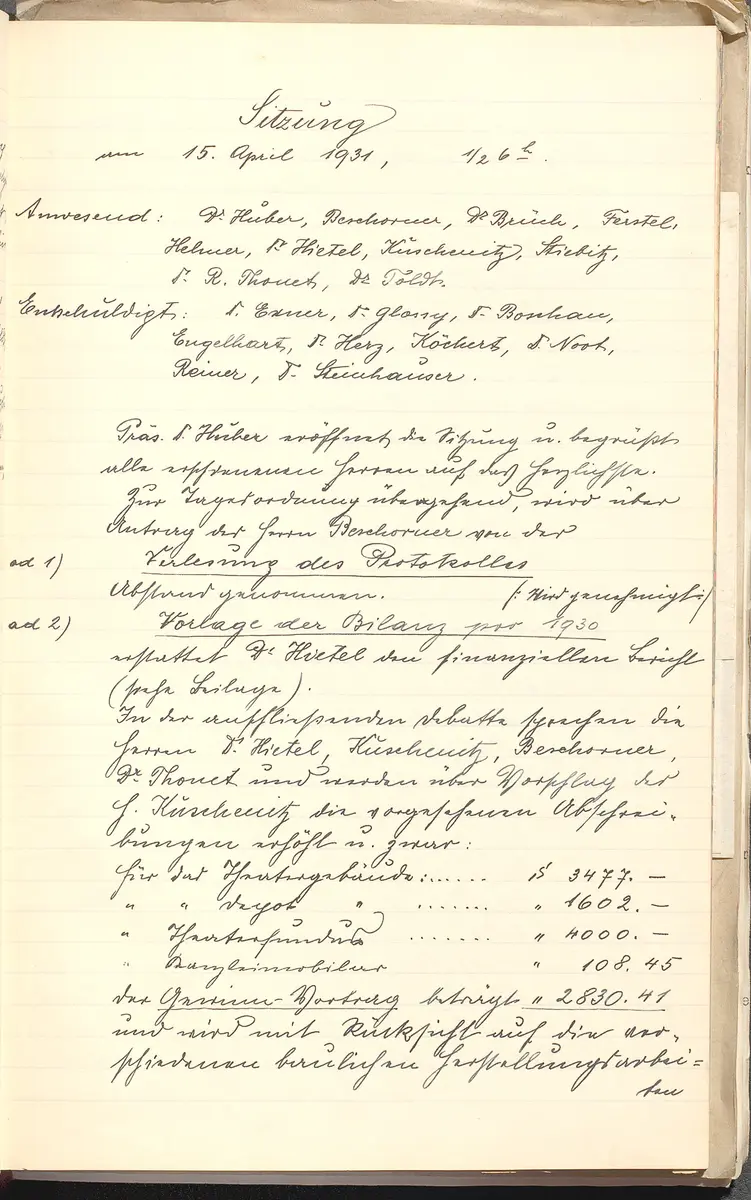 Sitzung
am 15. April 1931, 1/2 6 h.
Anwesend: Dr Huber, Beschorner, Dr Brüch, Ferstel,
Helmer, Dr Hietel, Kuschenitz, Stiebitz,
Dr. R. Thonet, Dr. Toldt.
Entschuldigt: Dr. Exner, Dr Glossy, Dr Boschan,
Engelhart, Dr Herz, Köchert, Dr Noot,
Reiner, Dr. Steinhauser.
Präs. Dr. Huber eröffnet die Sitzung u. begrüßt
alle erschienenen Herren auf das Herzlichste.
Zur Tagesordnung übergehend, wird über
Antrag des Herrn Beschorner von der
ad 1) Verlesung des Protokolles
Abstand genommen. (: Wird genehmigt :)
ad 2) Vorlage der Bilanz pro 1930
erstattet Dr Hietel den finanziellen Bericht
(siehe Beilage).
In der anschließenden Debatte sprechen die
Herren Dr. Hietel, Kuschenitz, Beschorner,
Dr. Thonet und werden über Vorschlag des
H. Kuschenitz die vorgesehenen Abschrei-
bungen erhöht u. zwar:
für das Theatergebäude:...... S 3477. —
" " Depot " ....... " 1602. —
" Theaterfundus ....... " 4000. —
" Kanzleimobilar " 108.45
der Gewinn-Vortrag beträgt " 2830.41
und wird mit Rücksicht auf die ver-
schiedenen baulichen Herstellungsarbei=
ten